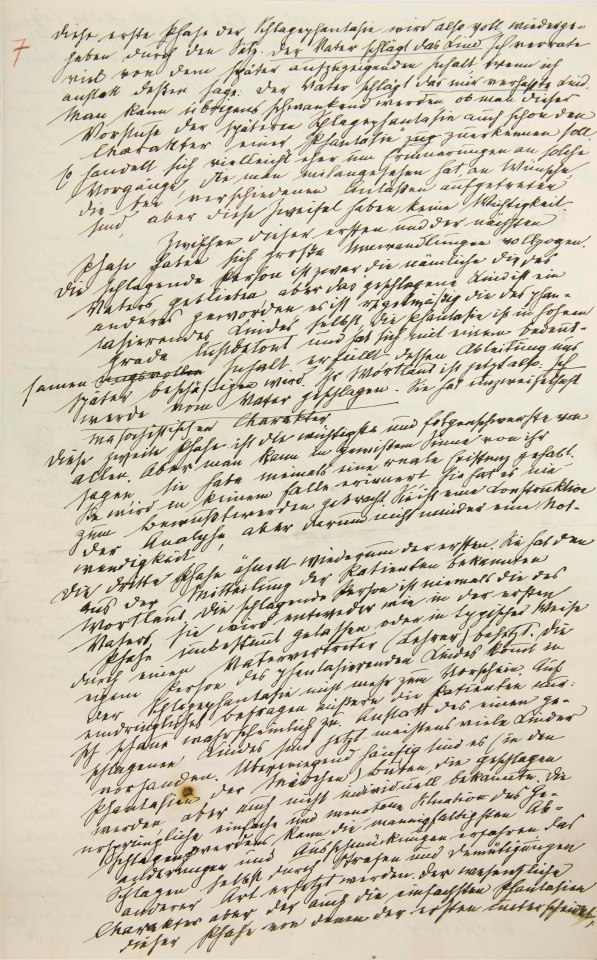 7
diese erste Phase der Schlagephantasie wird also voll wiederge-
geben durch den Satz: Der Vater schlägt das Kind. Ich verrate
viel von dem später aufzuzeigenden Inhalt wenn ich
anstatt dessen sage: Der Vater schlägt das mir verhaßte Kind.
Man kann übrigens schwankend werden, ob man dieser
Vorstufe der späteren Schlagephantasie auch schon den
Charakter einer „Phantasie“ zuerkennen soll.
Es handelt sich vielleicht eher um Erinnerungen an solche
Vorgänge, die man mitangesehen hat, an Wünsche,
die bei verschiedenen Anläßen aufgetreten
sind, aber diese Zweifel haben keine Wichtigkeit
Zwischen dieser ersten und der nächsten
Phase haben sich große Umwandlungen vollzogen.
Die schlagende Person ist zwar die nämliche, die des
Vaters geblieben, aber das geschlagene Kind ist ein
anderes geworden, es ist regelmäßig die des phan-
tasierenden Kindes selbst, die Phantasie ist in hohem
Grade lustbetont und hat sich mit einem bedeut-
samen Inhalt erfüllt, dessen Ableitung uns
später beschäftigen wird. Ihr Wortlaut ist jetzt also: Ich
werde vom Vater geschlagen. Sie hat unzweifelhaft
masochistischen Charakter
Diese zweite Phase ist die wichtigste und folgenschwerste von
allen. Aber man kann in gewissem Sinne von ihr
sagen, sie habe niemals eine reale Existenz gehabt.
Sie wird in keinem Falle erinnert, sie hat es nie
zum Bewußtwerden gebracht. Sie ist eine Construktion
der Analyse, aber darum nicht minder eine Not-
wendigkeit
Die dritte Phase ähnelt wiederum der ersten. Sie hat den
aus der Mitteilung der Patienten bekannten
Wortlaut. Die schlagende Person ist niemals die des
Vaters, sie wird entweder wie in der ersten
Phase unbestimmt gelassen oder in typischer Weise
durch einen Vatervertreter (Lehrer) besetzt. Die
eigene Person des phantasierenden Kindes kommt in
der Schlagephantasie nicht mehr zum Vorschein. Auf
eindringliches Befragen äußern die Patienten nur:
Ich schaue wahrscheinlich zu. Anstatt des einen ge-
schlagenen Kindes sind jetzt meistens viele Kinder
vorhanden. Überwiegend häufig sind es (in den
Phantasien der Mädchen) Buben, die geschlagen
werden aber auch nicht individuell bekannte. Die
ursprüngliche einfache und monotone Situation des Ge-
schlagenwerdens kann die mannigfaltigsten Ab-
änderungen und Ausschmückungen erfahren, das
Schlagen selbst durch Strafen und Demütigungen
anderer Art ersetzt werden. Der wesentliche
Charakter aber der auch die einfachsten Phantasien
dieser Phase von denen der ersten unterscheidet,